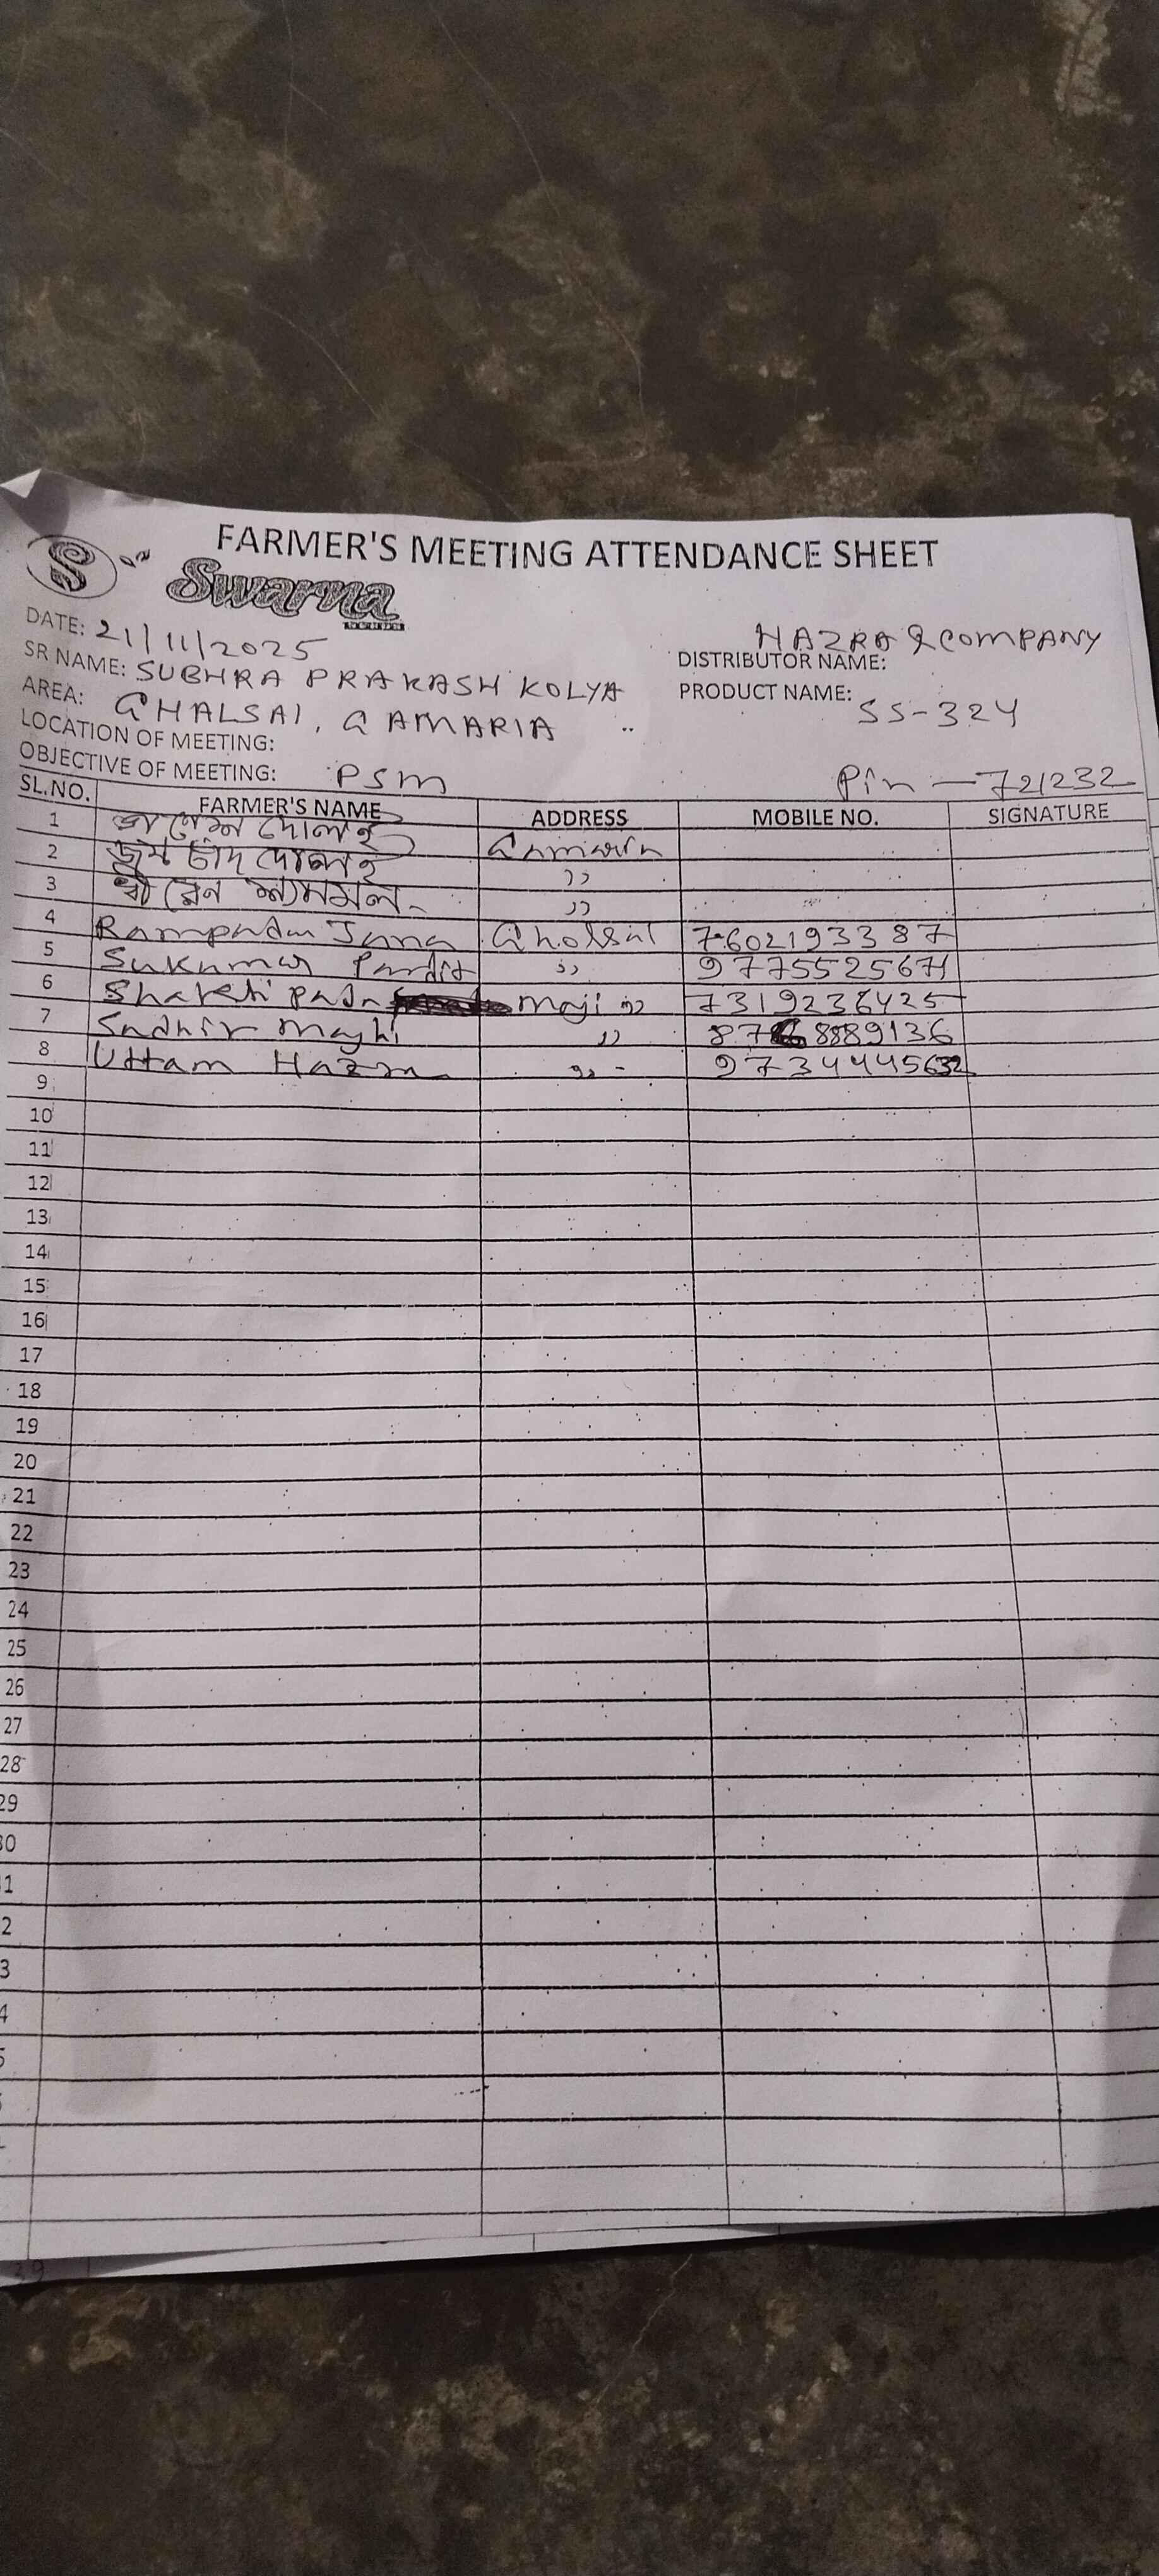 FARMER'S MEETING ATTENDANCE SHEET
S Swarna
DATE: 21/11/2025
HAZRA & COMPANY
DISTRIBUTOR NAME:
SR NAME: SUBHRA PRAKASH KOLYA
PRODUCT NAME: SS-324
AREA: GHALSAI, GAMARIA
LOCATION OF MEETING:
OBJECTIVE OF MEETING: PSM
Pin - 721232
SL.NO. FARMER'S NAME ADDRESS MOBILE NO. SIGNATURE
1 দোলাই
2 জয় চাঁদ দোলাই
3 ধীরেন
4 Rampada Jana Gholsai 7602193387
5 Sukumar Pandit ,,
6 Shakti pada maji ,, 7319236425
7 Sudhir majhi ,, 8889136
8 Uttam Hazra ,, 9734445632
9
10
11
12
13
14
15
16
17
18
19
20
21
22
23
24
25
26
27
28
29
30
1
2
3
4
5
39